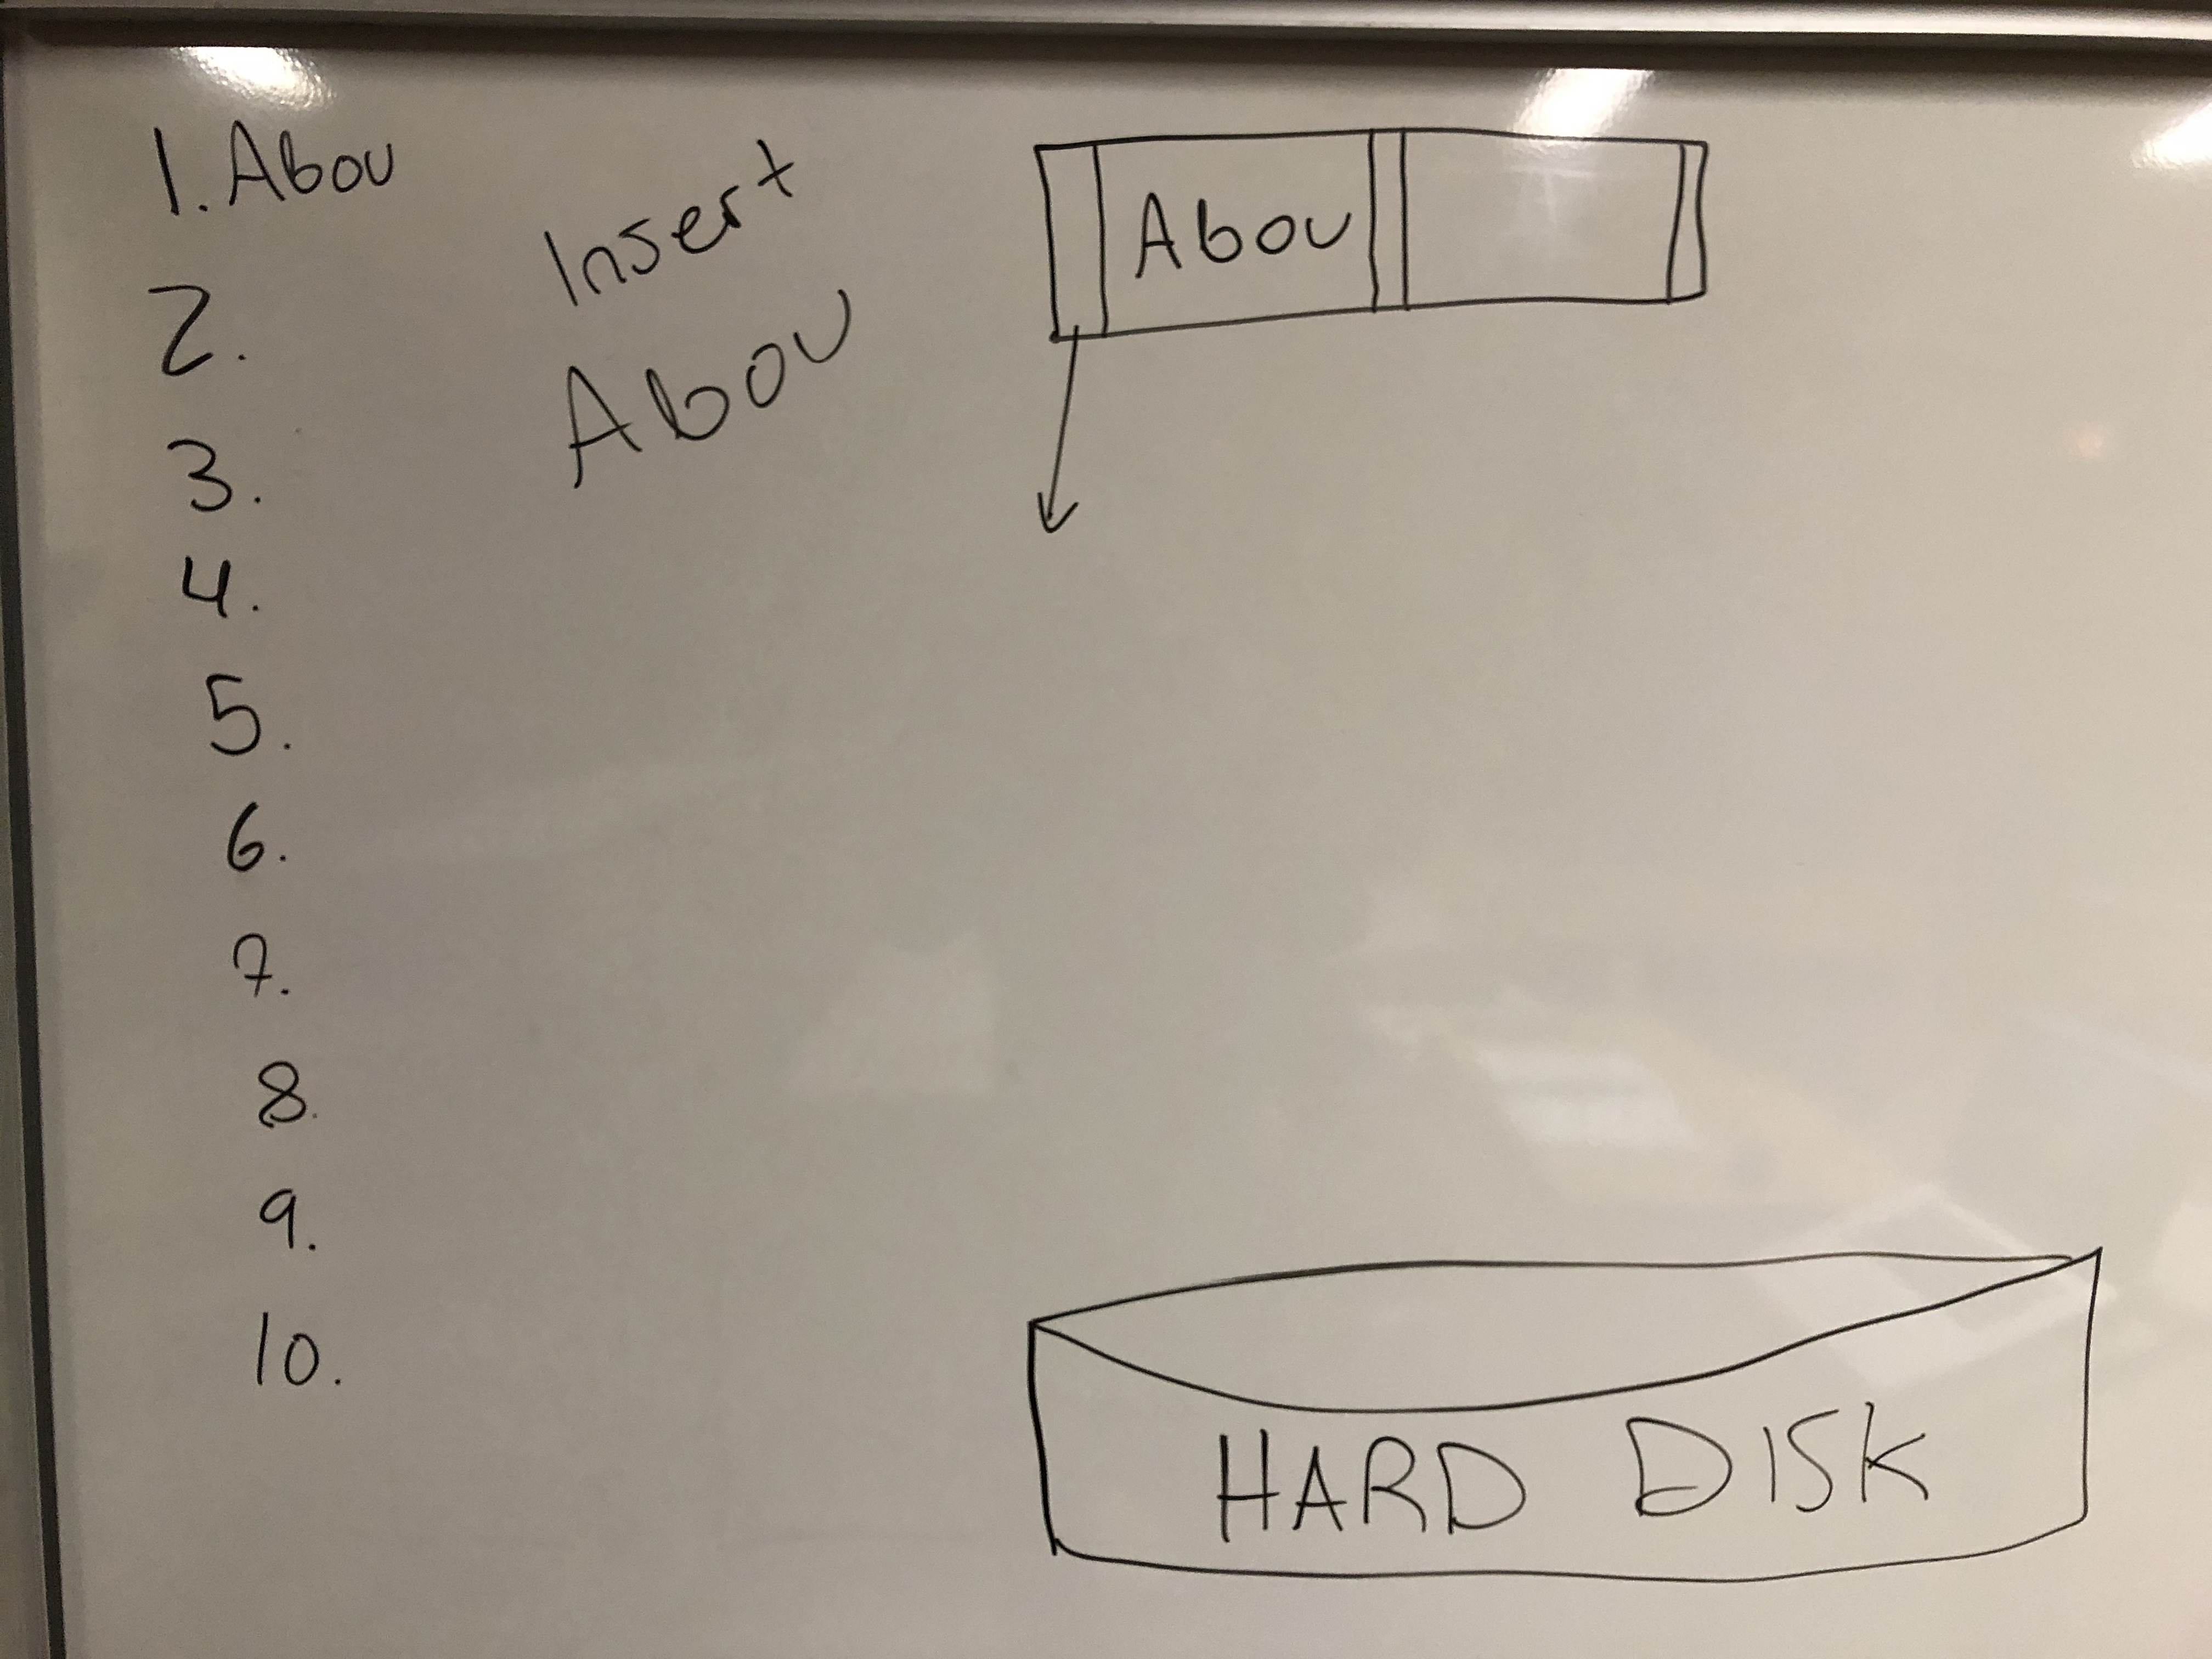 1. Abou
2.
3.
4.
5.
6.
7.
8.
9.
10.
Insert
Abou
Abou
HARD DISK